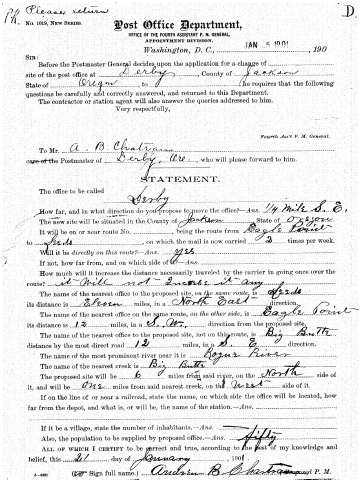 Please return
D.
No. 1019, New Series.
Post Office Department,
OFFICE OF THE FOURTH ASSISTANT P. M. GENERAL,
APPOINTMENT DIVISION,
Washington, D. C., JAN 5 1901, 190
SIR:
Before the Postmaster General decides upon the application for a change of
site of the post office at Derby, County of Jackson
State of Oregon to he requires the following
questions be carefully and correctly answered, and returned to this Department.
The contractor or station agent will also answer the queries addressed to him.
Very respectfully,
Fourth Ass't P. M. General.
To Mr. A. B. Chatman
care of the Postmaster of Derby, Ore, who will please forward to him.
STATEMENT.
The office to be called Derby
How far, and in what direction do you propose to move the office?—Ans. 1/4 Mile S. E.
The new site will be situated in the County of Jackson State of Oregon
It will be on or near route No. , being the route from Eagle Point
to Leeds, on which the mail is now carried 3 times per week.
Will it be directly on this route?—Ans. yes
If not, how far from, and on which side of it?—Ans.
How much will it increase the distance necessarily traveled by the carrier in going once over the
route? it will not increase it any
The name of the nearest office to the proposed site, on the same route, is Leeds
its distance is Eleven miles, in a North East direction.
The name of the nearest office on the same route, on the other side, is Eagle Point
its distance is 12 miles, in a S. W. direction from the proposed site.
The name of the nearest office to the proposed site, not on this route, is Big Butte
distance by the most direct road 12 miles, in a S. E. direction.
The name of the most prominent river near it is Rogue River
The name of the nearest creek is Big Butte
The proposed site will be 6 miles from said river, on the North side of
it, and will be one miles from said nearest creek, on the West side of it.
If on the line of or near a railroad, state the name, on which side the office will be located, how
far from the depot, and what is, or will be, the name of the station.—Ans.
If it be a village, state the number of inhabitants.—Ans.
Also, the population to be supplied by proposed office.—Ans. fifty
ALL OF WHICH I CERTIFY to be correct and true, according to the best of my knowledge and
belief, this 21 day of January, 1901
(Sign full name.) Andrew B Chatman P. M.